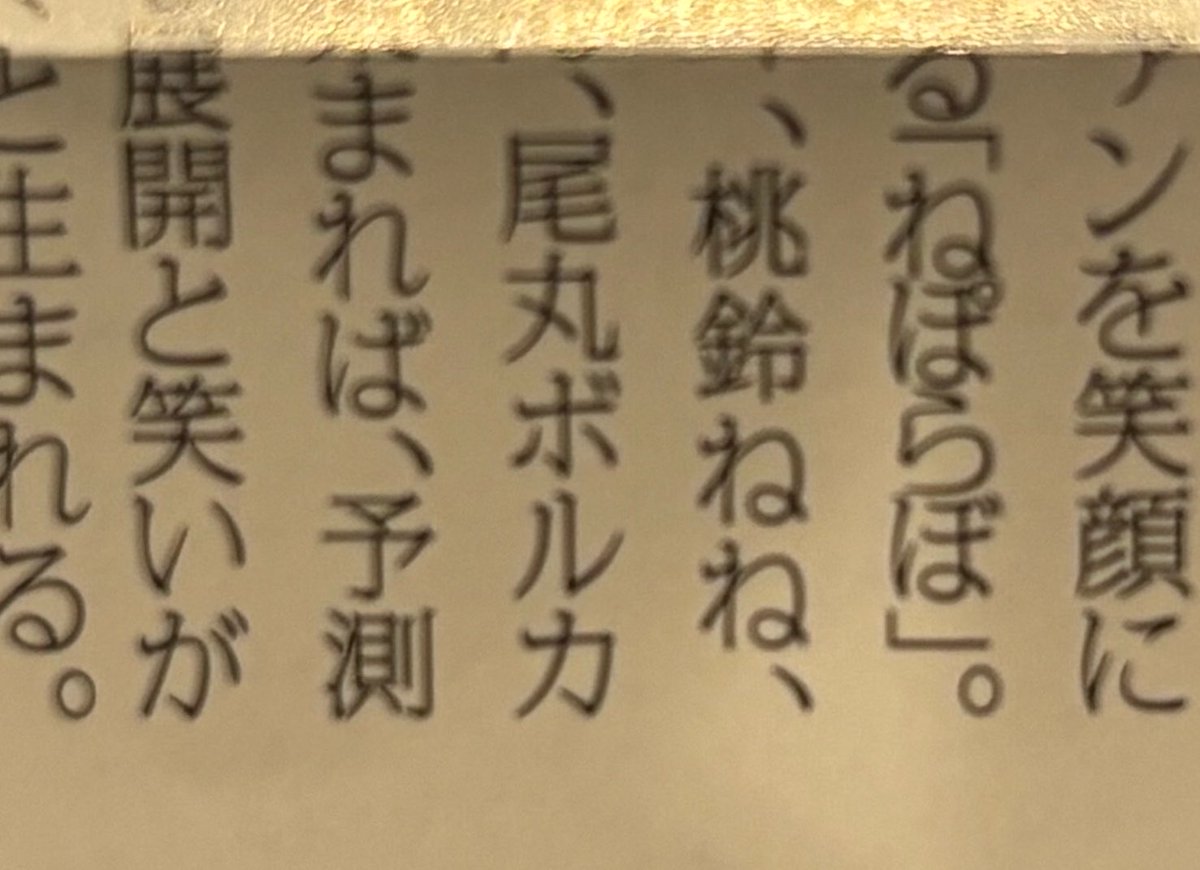 ンを笑顔に
る「ねぽらぼ」。
、桃鈴ねね、
、尾丸ボルカ
まれば、予測
展開と笑いが
と生まれる。